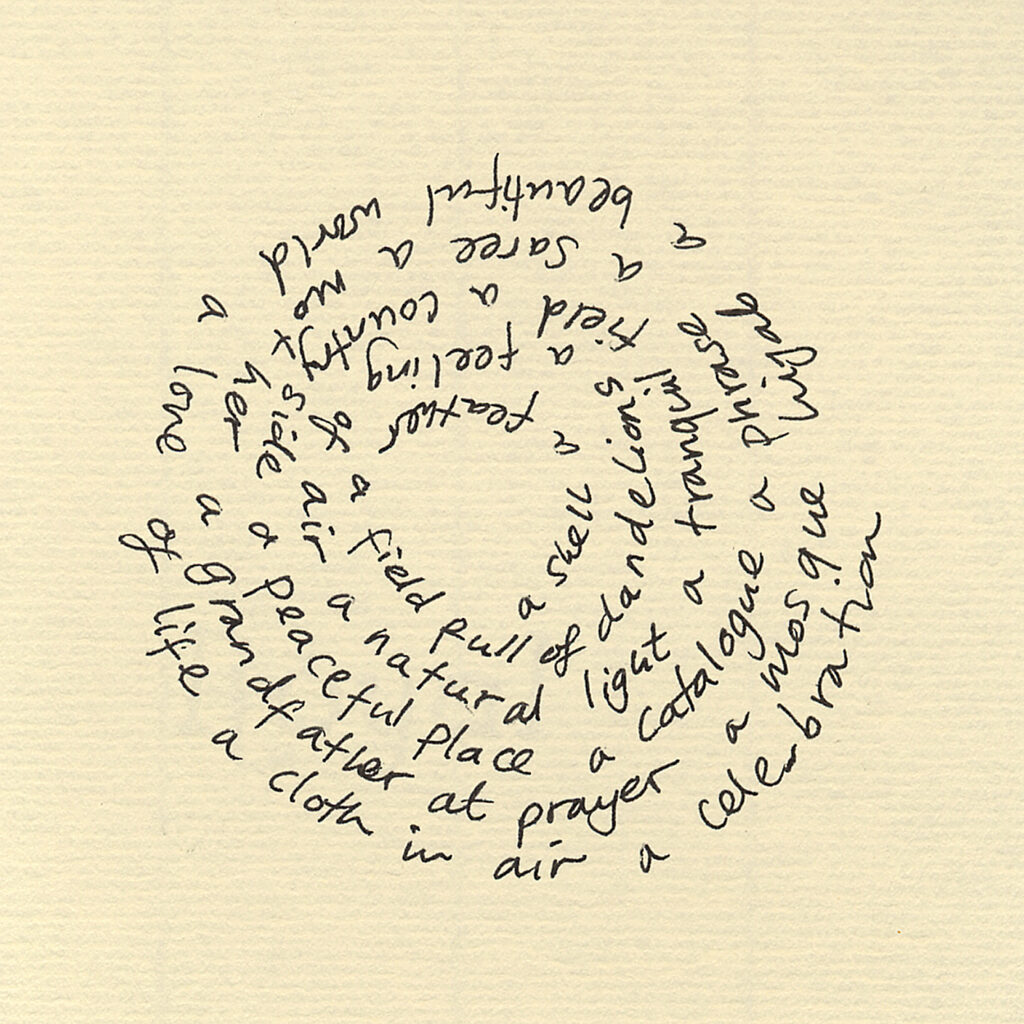 a shell a feather a field full of dandelions a feeling of air a natural light a tranquil field a country side a peaceful place a catalogue a phrase a saree a mother a grandfather at prayer a mosque a hijab a beautiful world a love of life a cloth in air a celebration